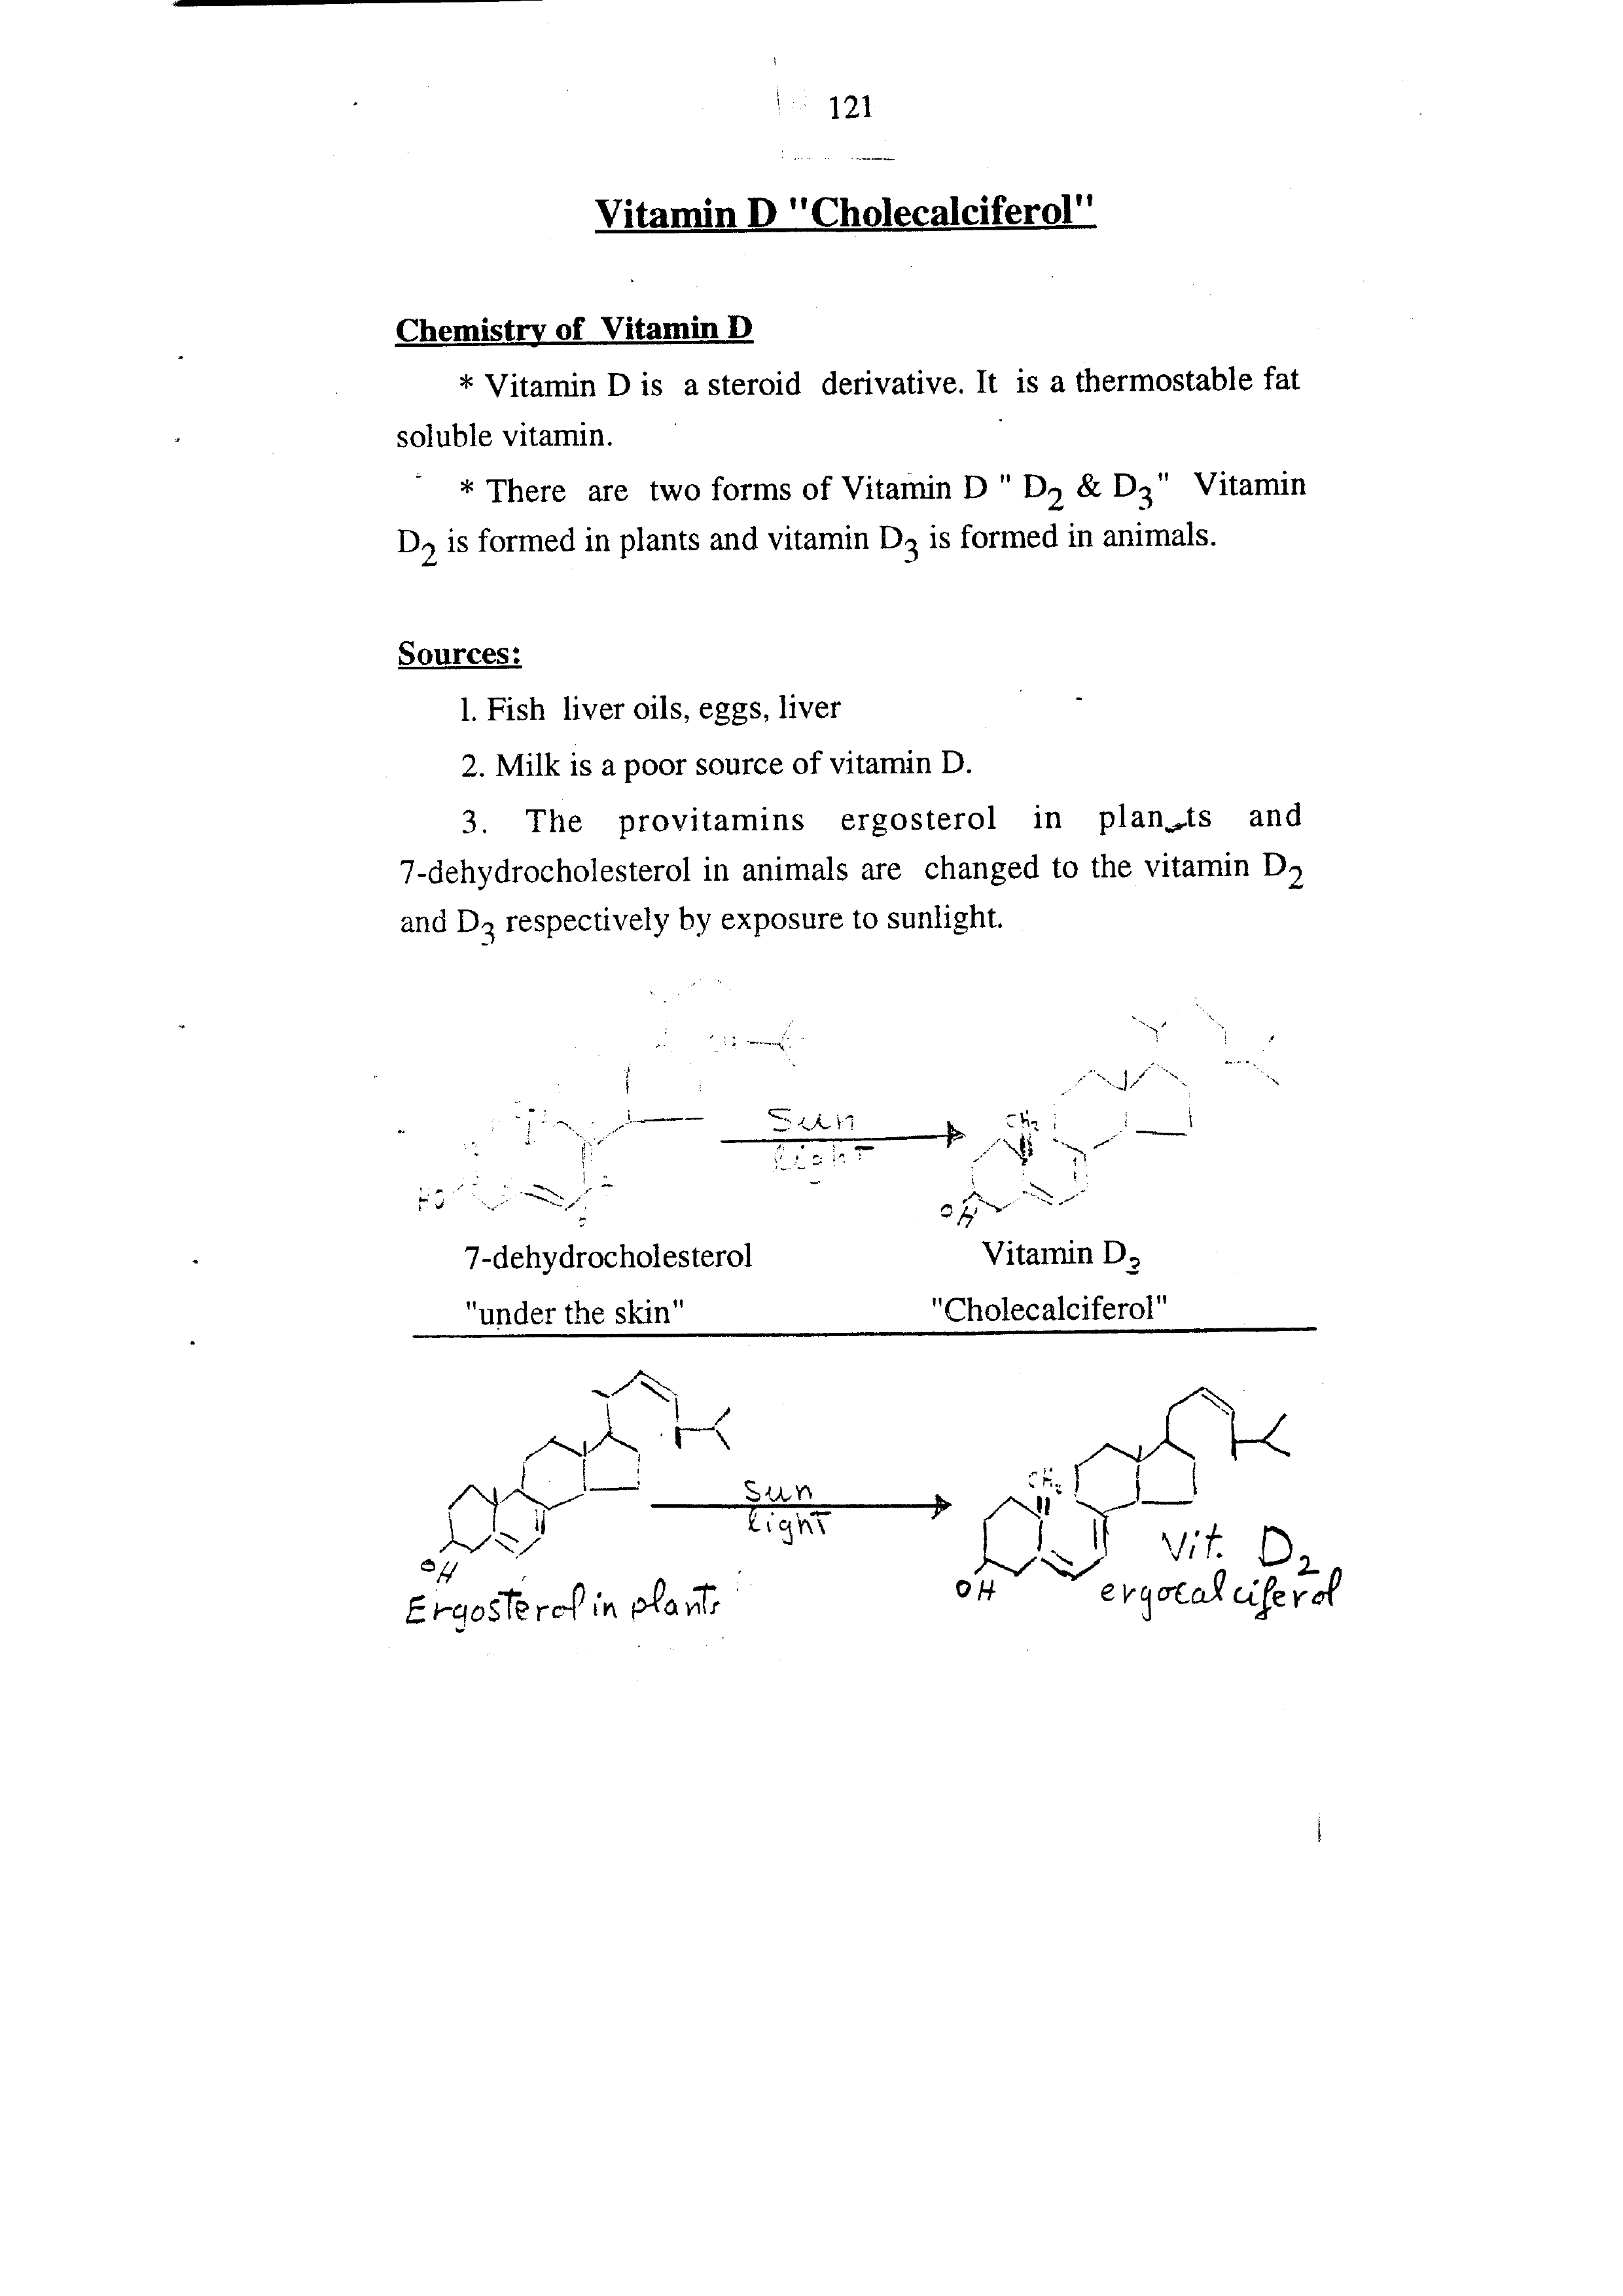 121
Vitamin D "Cholecalciferol"
Chemistry of Vitamin D
* Vitamin D is a steroid derivative. It is a thermostable fat
soluble vitamin.
* There are two forms of Vitamin D " D₂ & D₃" Vitamin
D₂ is formed in plants and vitamin D₃ is formed in animals.
Sources:
1. Fish liver oils, eggs, liver
2. Milk is a poor source of vitamin D.
3. The provitamins ergosterol in plants and
7-dehydrocholesterol in animals are changed to the vitamin D₂
and D₃ respectively by exposure to sunlight.
Sun
light
CH₂
HO
OH
7-dehydrocholesterol Vitamin D₃
"under the skin" "Cholecalciferol"
Sun
light
CH₂
OH
OH
Vit. D₂
Ergosterol in plants ergocalciferol